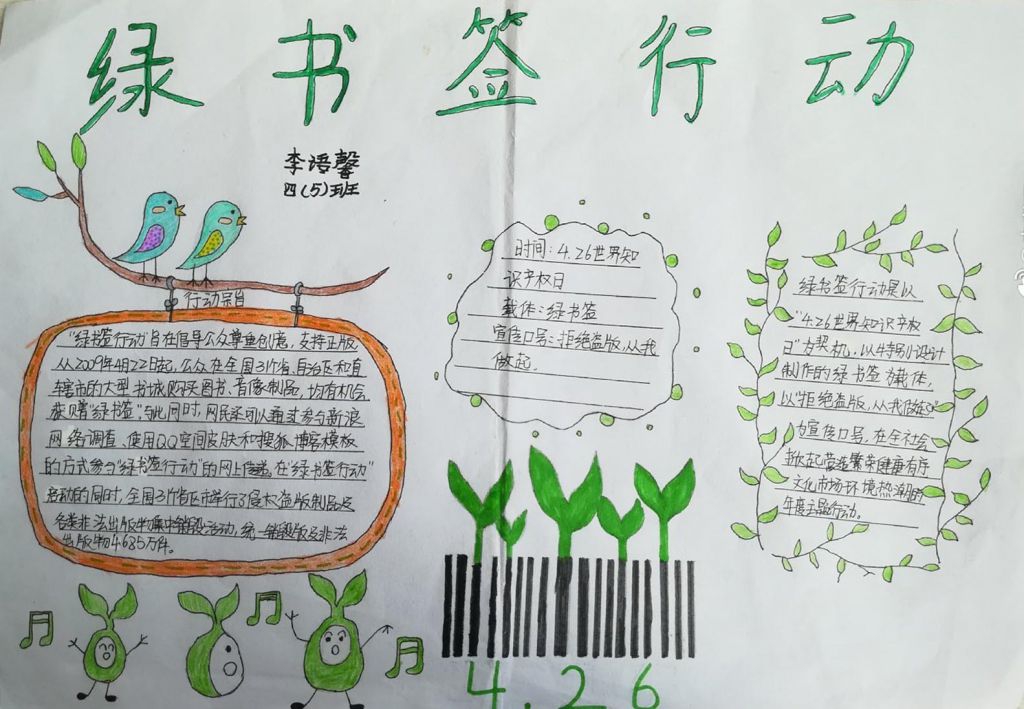 绿书签行动
李语馨
四(5)班
行动宗旨
"绿书签行动"旨在倡导公众尊重创意,支持正版,
从2009年4月22日起,公众在全国31个省、自治区和直
辖市的大型书城购买图书、音像制品,均有机会
获赠"绿书签"。与此同时,网民还可以通过参与新浪
网络调查、使用QQ空间皮肤和搜狐博客模板
的方式参与"绿书签行动"的网上传递。在"绿书签行动"
启动的同时,全国31个省区市举行了展大盗版制品及
各类非法出版物集中销毁活动,统一销毁版及非法
出版物4685万件。
时间:4.26世界知
识产权日
载体:绿书签
宣传口号:拒绝盗版,从我
做起。
绿书签行动是以
"4.26世界知识产权
日"为契机,以特别设计
制作的绿书签为载体,
以"拒绝盗版,从我做起"
为宣传口号,在全社会
掀起营造繁荣健康有序
文化市场环境热潮的
年度主题行动。
4.26